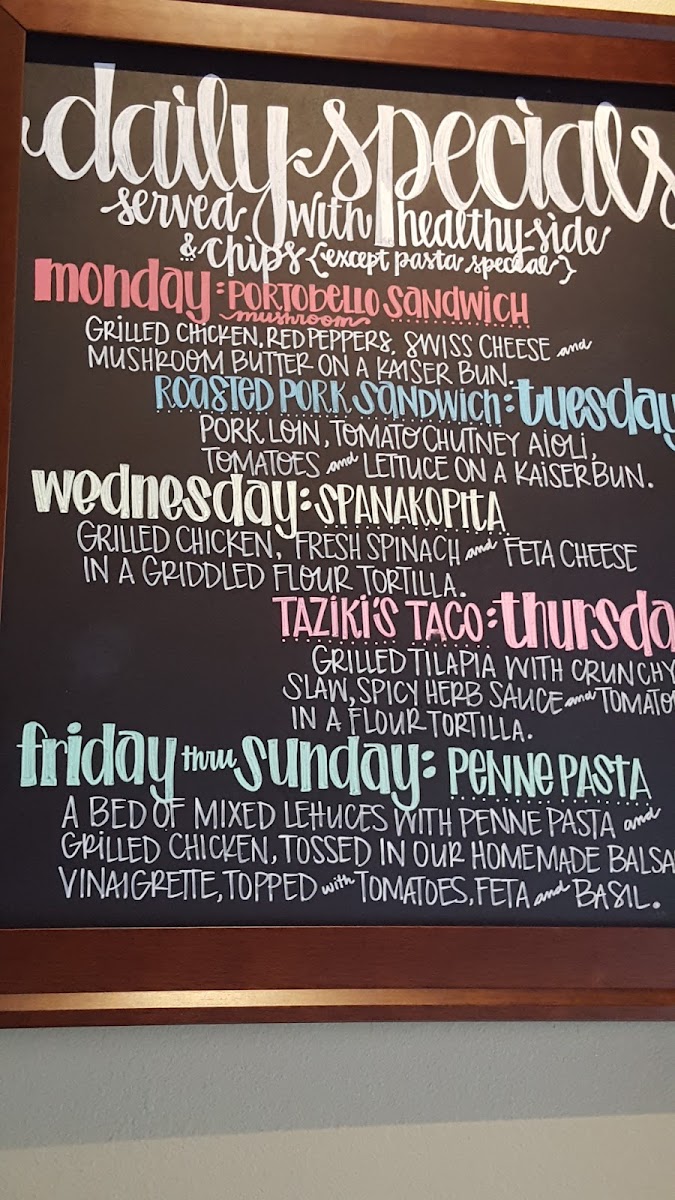 daily specials
served with healthy side
& chips {except pasta special}
monday: PORTOBELLO SANDWICH
mushroom
GRILLED CHICKEN, RED PEPPERS, SWISS CHEESE and
MUSHROOM BUTTER ON A KAISER BUN.
ROASTED PORK SANDWICH: tuesday
PORK LOIN, TOMATO CHUTNEY AIOLI,
TOMATOES and LETTUCE ON A KAISER BUN.
wednesday: SPANAKOPITA
GRILLED CHICKEN, FRESH SPINACH and FETA CHEESE
IN A GRIDDLED FLOUR TORTILLA.
TAZIKI'S TACO: thursda
GRILLED TILAPIA WITH CRUNCHY
SLAW, SPICY HERB SAUCE and TOMATO
IN A FLOUR TORTILLA.
friday thru sunday: PENNE PASTA
A BED OF MIXED LETTUCES WITH PENNE PASTA and
GRILLED CHICKEN, TOSSED IN OUR HOMEMADE BALSA
VINAIGRETTE, TOPPED with TOMATOES, FETA and BASIL.